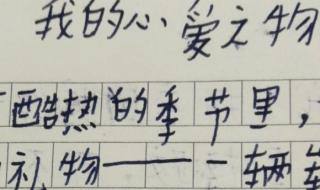 我的心爱之物
酷热的季节里，
礼物——一辆